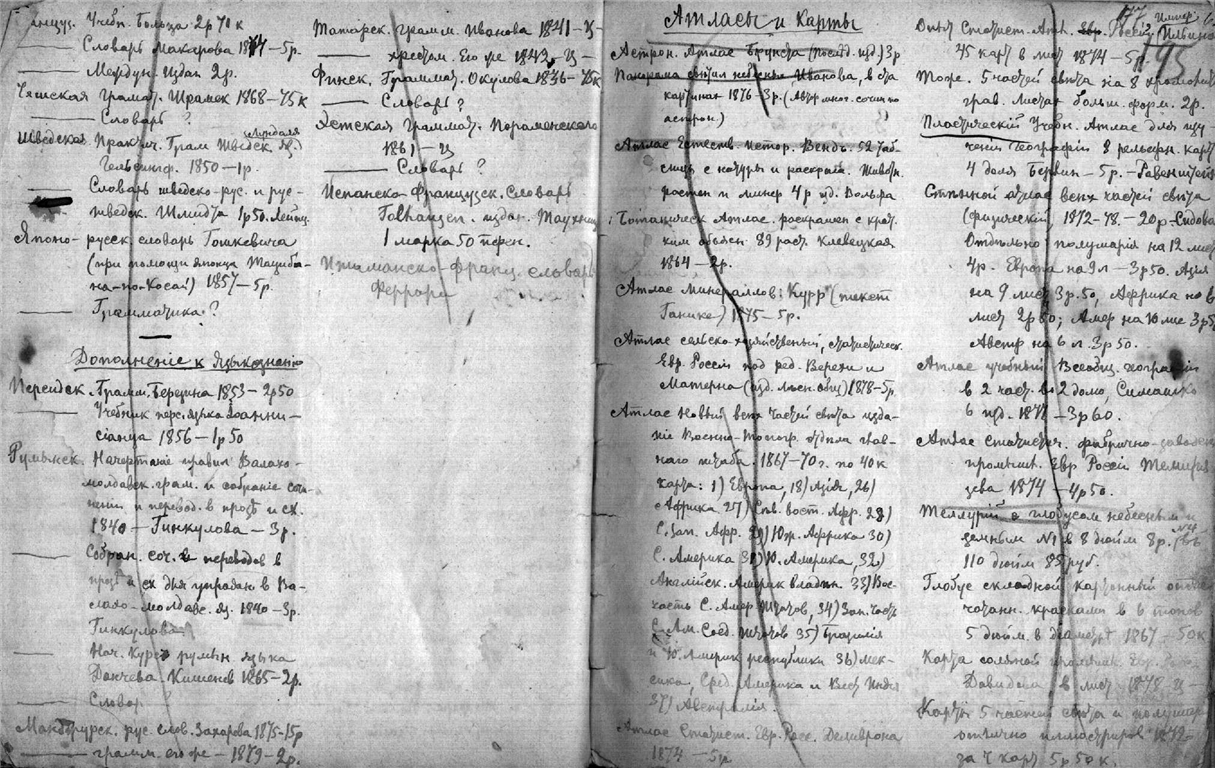 Учебн. Больза 2р 70 к
Словарь Макарова 1874 – 5р.
Междун. издан 2р.
Чешская Грамат. Шрамек 1868 – 75к
Словарь ?
Шведская Практич. Грам Шведск яз.
Гельсингф. 1850 – 1р.
Словарь шведско-рус. и рус-
шведск. Шмидта 1р50. Лейпц
Японо-русск. словарь Гошкевича
(при помощи японца Тацибана-
на-но-Косай) 1857 – 5р.
Грамматика ?
Дополненіе к языкознанію
Персидск. Грамм. Березина 1853 – 2р50
Учебник перс. языка Іоанни-
сіанца 1856 – 1р50
Румынск. Начертаніе правил Валахо-
молдавск. грам. и собраніе сочи-
неній и перевод. в прозѣ и ст.
1840 – Гинкулова – 3р.
Собран. соч. и переводов в
прозѣ и ст для упражн. в Ва-
лахо-молдавс. яз. 1840 – 3р.
Гинкулова
Нач. Курс румын языка
Дончева. Кишенев 1865 – 2р.
Словар
Манджурск. рус. слов. Захарова 1875 – 15р
грамм. его же – 1879 – 2р.
Татарск. грамм. Иванова 1841 – Ц
хрестом. Его же 1842 – Ц –
Финск. Граммат. Окулова 1836 – 75к
Словарь ?
Хетская Граммат.
1861 – Ц
Словарь ?
Испанско-Французск. Словарь
Tolhausen. издан. Таухниц
1 марка 50 пфен.
Италианско-франц. словарь
Феррари
Атласы и Карты
Астрон. Атлас Брунса (послѣд изд) 3р
Панорама свѣтил небесных Иванова, в ста
картинах 1876 – 3р. (Автор мног. сочин по
астрон.)
Атлас Естеств. Истор. Вендт. 52 таб
лиц с натуры и раскраш. Животн.
растен и минер 4р изд. Вольфа
Ботаническ Атлас, раскрашен с крат.
ким объясн. 89 раст. Клевецкая
1864 – 2р.
Атлас Минераллов: Курр (текст
Ганике) 1875 – 5р.
Атлас сельско-хозяйственный, статистическ.
Евр. Россіи под ред. Верехи и
Матерна (изд. лѣсн. общ) 1878 – 5р.
Атлас Новый всѣх частей свѣта изда-
ніе Военно-Топогр. отдѣла глав-
наго штаба. 1867 – 70 г. по 40к
карта: 1) Европа, 13) Азія, 26)
Африка 27) Сѣв. вост. Афр. 28)
С. зап. Афр. 29) Юж. Африка 30)
С. Америка 31) Ю. Америка, 32)
Англійск. Америк владѣн. 33) Вос-
часть С. Амер Штатов, 34) Зап. часть
С. Ам. Соед. Штатов 35) Бразилія
и Ю. Америк республики 36) Мек-
сика, Сред. Америка и Вест Индія
37) Австралія
Атлас Статист. Евр. Росс. Деливрона
1874 – 5р
177
193
Опыт Статист. Атл. Евр. Россіи Ильина
45 карт в лист 1874 – 5
Тоже. 5 частей свѣта на 8
грав. листах больш. форм. 2р.
Пластическій Учебн. Атлас для изу
ченія Географіи 8 рельефн. карт
4 доля Берлин – 5р. – Равенштейн
Стѣнной атлас всѣх частей свѣта
(физическій) 1872 – 78. – 20р – Сидова
Отдѣльно полушарія на 12 лис
4р. Европа на 9 л – 3р50. Азія
на 9 лист 3р.50, Африка на 6
лист 2р50; Амер на 10 лис 3р5
Австр на 6 л. 3р50.
Атлас учебный Всеобщ. географіи
в 2 част. в 2 долю, Симашко
6 изд. 1877 – 3р60.
Атлас статистич. фабрично-заводск
промышл. Евр. Россіи Темиря
зева 1874 – 4р50.
Теллурій с глобусом небесным и
земным №1 в 8 дюйм 8р. (№4 въ
110 дюйм 85 руб.
Глобус складной картонный отпе
чатанн. красками в 6 тонов
5 дюйм. в діаметрѣ 1867 – 50к
Карта соляной промышл. Евр.
в лист 1878 – Ц
Карты 5 частей свѣта и полушар
отлично иллюстриров. 1872
за 7 карт 5р 50 к.